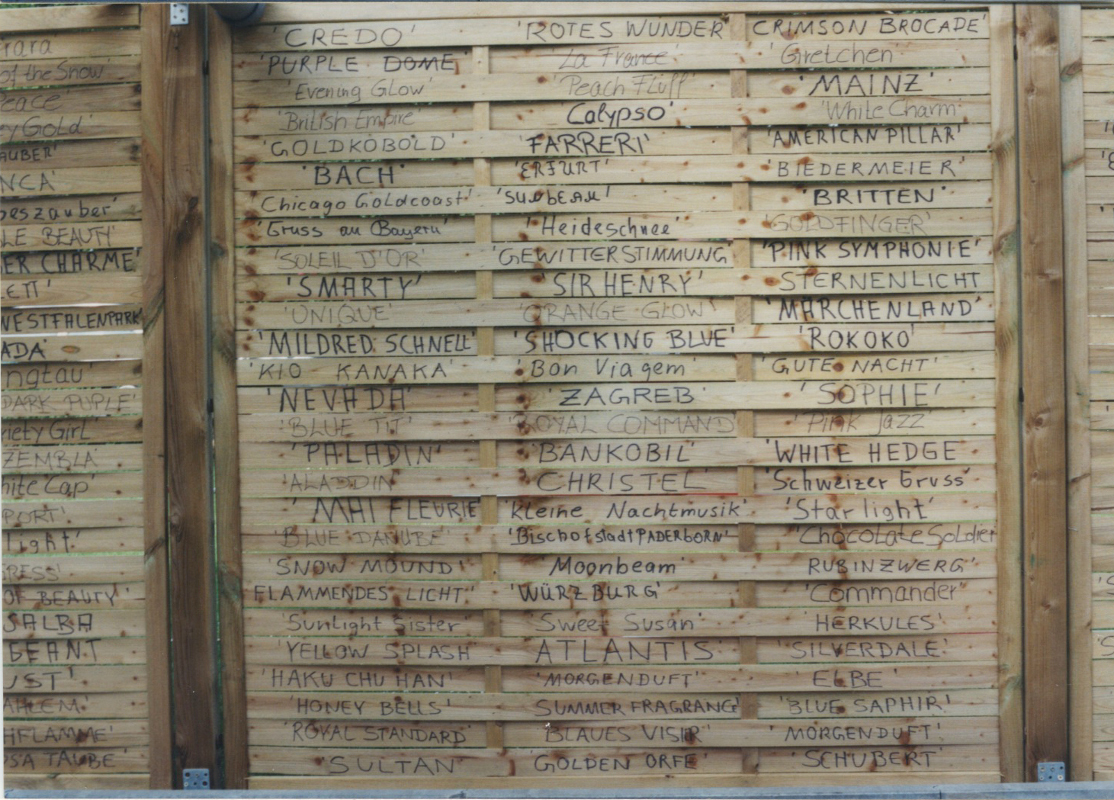 'CREDO' 'ROTES WUNDER' CRIMSON BROCADE'
'PURPLE DOME' 'La France' 'Gretchen'
'Evening Glow' 'Peach Fluff' 'MAINZ'
'British Empire' 'Calypso' 'White Charm'
'GOLDKOBOLD' 'FARRERI' 'AMERICAN PILLAR'
'BACH' 'ERFURT' 'BIEDERMEIER'
'Chicago Goldcoast' 'SUNBEAM' 'BRITTEN'
'Gruss an Bayern' 'Heideschnee' 'GOLDFINGER'
'SOLEIL D'OR' 'GEWITTERSTIMMUNG' 'PINK SYMPHONIE'
'SMARTY' 'SIR HENRY' 'STERNENLICHT
'UNIQUE' 'ORANGE GLOW' 'MÄRCHENLAND'
'MILDRED SCHNELL' 'SHOCKING BLUE' 'ROKOKO'
'KIO KANAKA' 'Bon Viagem' 'GUTE NACHT'
'NEVADA' 'ZAGREB' 'SOPHIE'
'BLUE TIT' 'ROYAL COMMAND' 'Pink Jazz'
'PALADIN' 'BANKOBIL' 'WHITE HEDGE
'ALADDIN' 'CHRISTEL' 'Schweizer Gruss'
'MAI FLEURIE 'kleine Nachtmusik' 'Starlight'
'BLUE DANUBE' 'Bischofstadt PADERBORN' 'Chocolate Soldier
'SNOW MOUND' 'Moonbeam' RUBINZWERG'
FLAMMENDES LICHT' 'WÜRZBURG' 'Commander'
'Sunlight Sister' 'Sweet Susan' 'HERKULES'
'YELLOW SPLASH' 'ATLANTIS' 'SILVERDALE'
'HAKU CHU HAN' 'MORGENDUFT' 'ELBE'
'HONEY BELLS' SUMMER FRAGRANC 'BLUE SAPHIR'
'ROYAL STANDARD' 'BLAUES VISIR' MORGENDUFT'
'SULTAN' GOLDEN ORFE' 'SCHUBERT'
of the Snow'
eace'
y Gold'
AUBER'
NCA'
beszauber'
LE BEAUTY'
ER CHARME'
WESTFALENPARK'
ADA'
ngtau'
DARK PUPLE'
iety Girl'
ZEMBLA'
hite Cap'
PORT'
light'
RESS'
OF BEAUTY'
SALBA
GEANT
UST'
AHLEM'
HFLAMME'
OSA TAUBE'